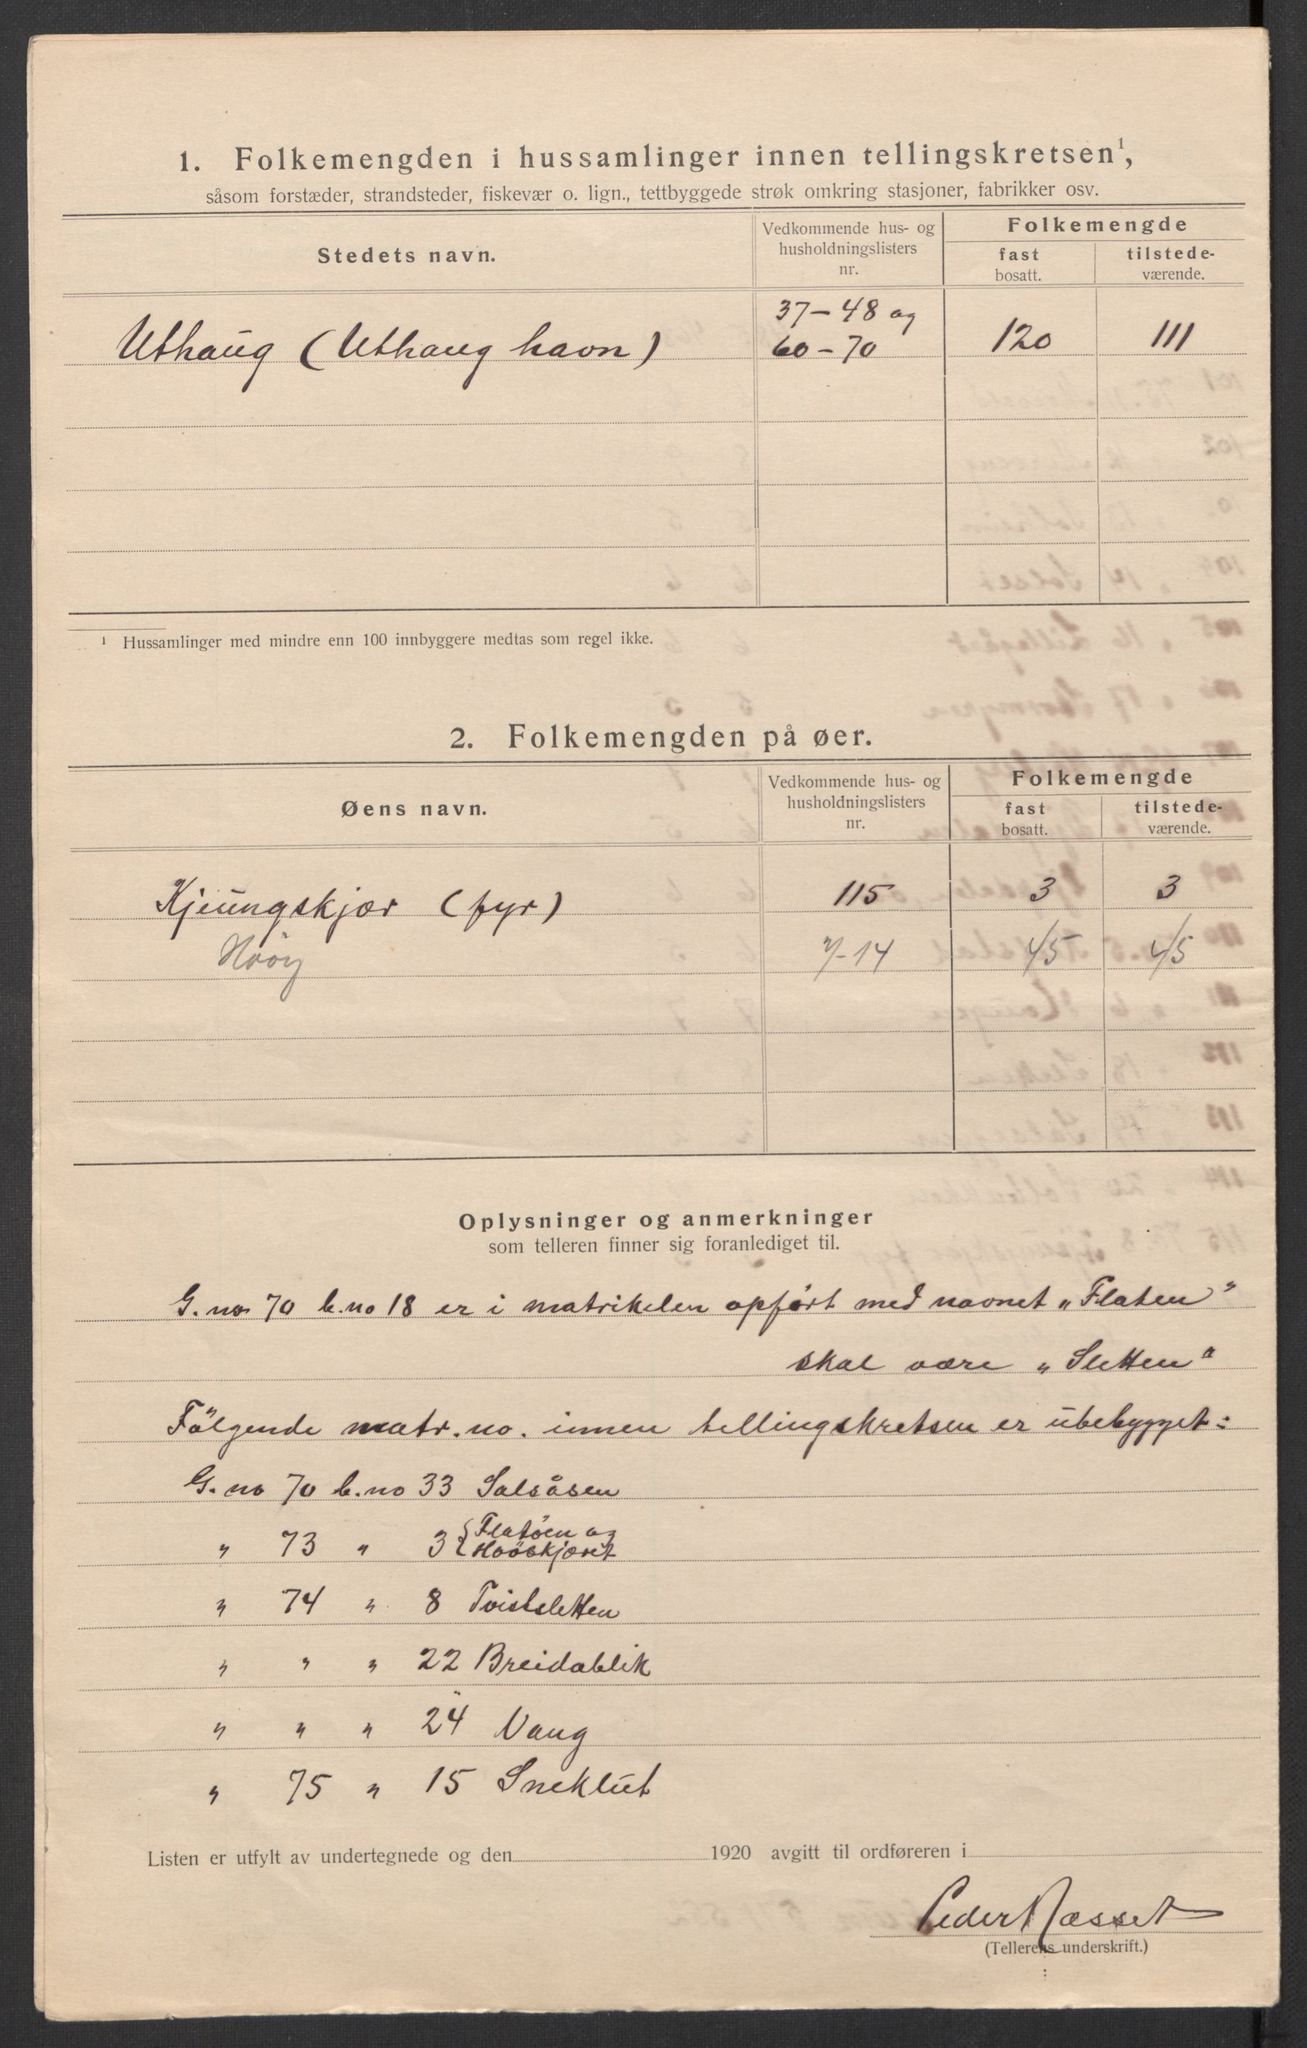 1. Folkemengden i hussamlinger innen tellingskretsen¹,
såsom forstæder, strandsteder, fiskevær o. lign., tettbyggede strøk omkring stasjoner, fabrikker osv.
Stedets navn. Vedkommende hus- og husholdningslisters nr. Folkemengde
fast bosatt. tilstede-værende.
Uthaug (Uthaug havn) 37-48 og 60-70 120 111
¹ Hussamlinger med mindre enn 100 innbyggere medtas som regel ikke.
2. Folkemengden på øer.
Øens navn. Vedkommende hus- og husholdningslisters nr. Folkemengde
fast bosatt. tilstede-værende.
Kjeungskjær (fyr) 115 3 3
-14 45 45
Oplysninger og anmerkninger
som telleren finner sig foranlediget til.
G. no 70 b. no 18 er i matrikelen opført med navnet „Flaten"
skal være „Sletten"
Følgende matr. no. innen tellingskretsen er ubebygget:
G. no 70 b. no 33 Salsåsen
„ 73 „ 3 { Flatøen og
Hoøskjæret
„ 74 „ 8 Tvistsletten
„ „ „ 22 Breidablik
„ „ „ 24 Vang
„ 75 „ 15 Sneklut
Listen er utfylt av undertegnede og den 1920 avgitt til ordføreren i
Peder Næsset
(Tellerens underskrift.)